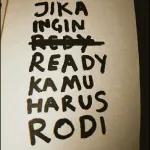 JIKA
INGIN
REDY
READY
KAMU
HARUS
RODI